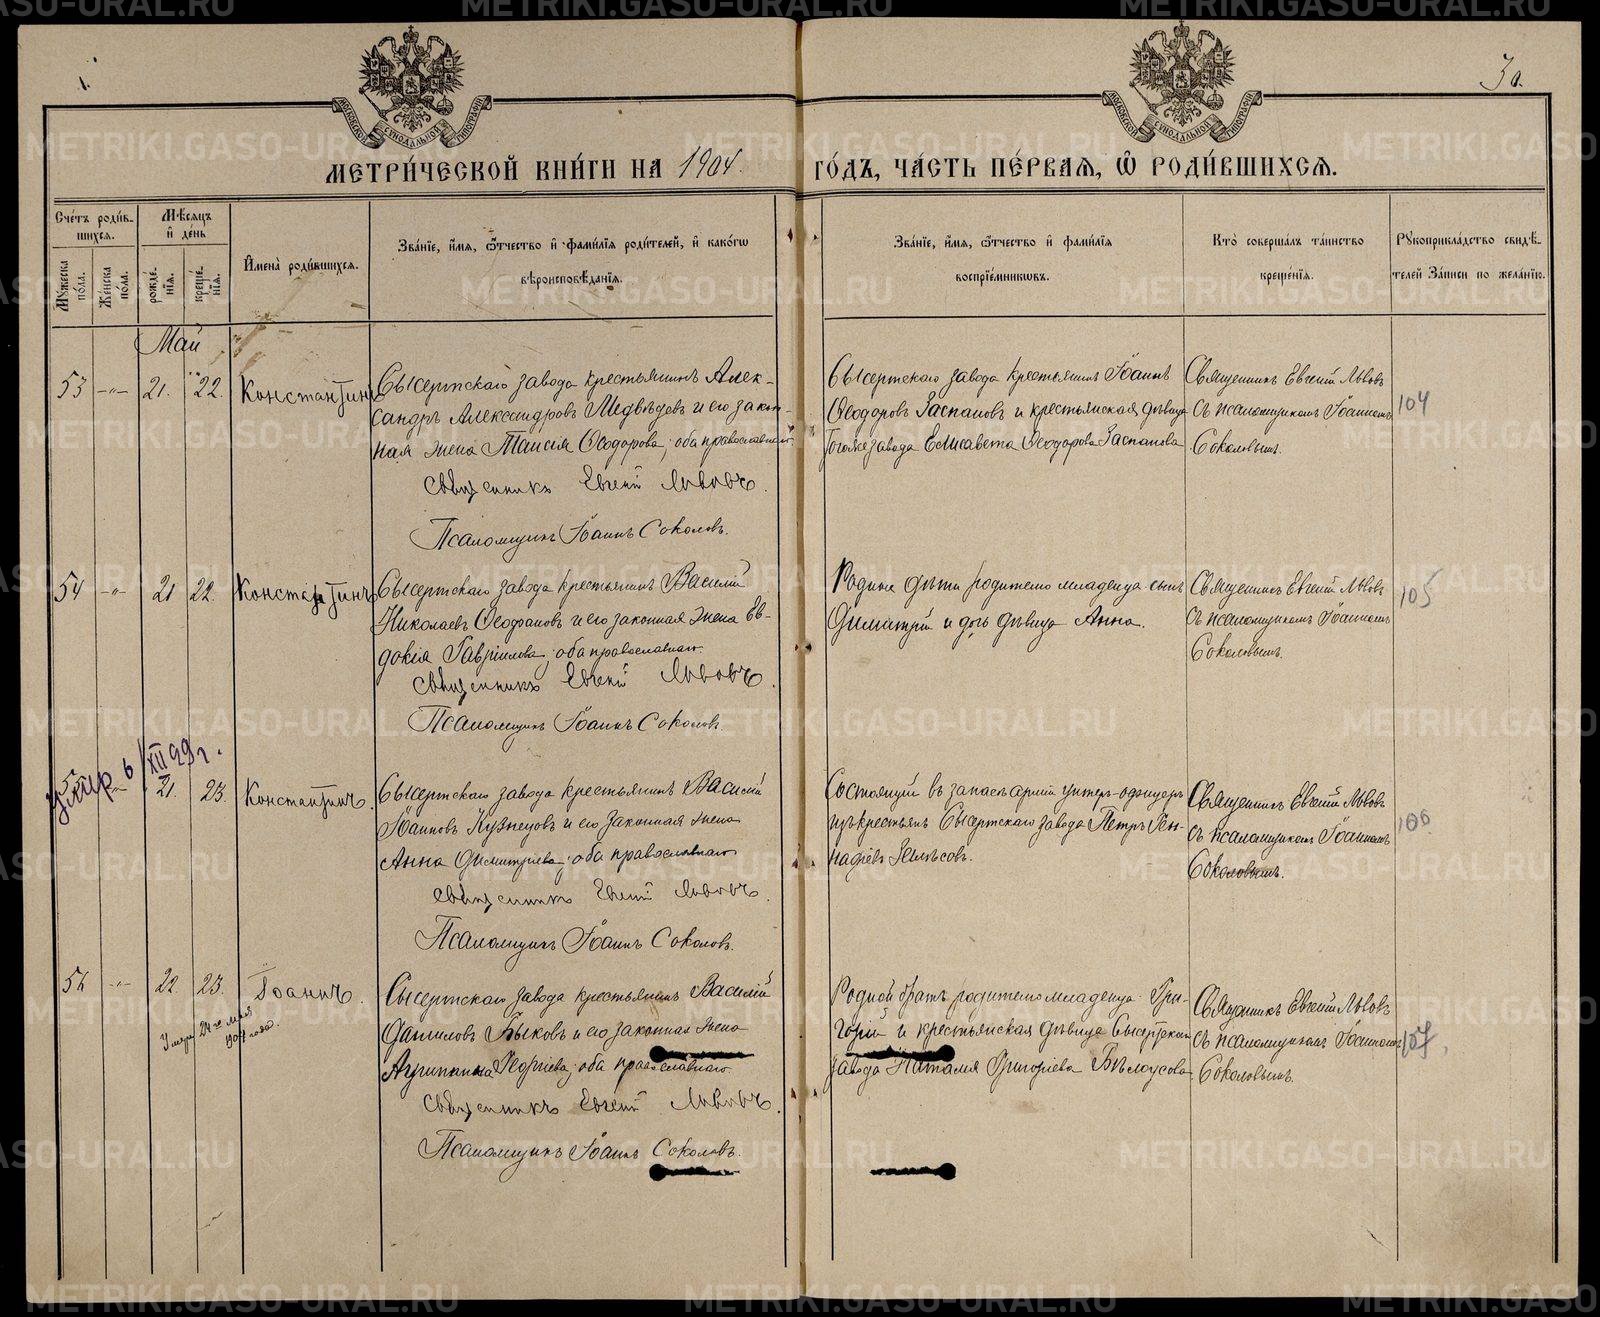 1.
30.
МОСКОВСКОЙ СѴНОДАЛЬНОЙ ТИПОГРАФІИ
МОСКОВСКОЙ СѴНОДАЛЬНОЙ ТИПОГРАФІИ
МЕТРИ́ЧЕСКОЙ КНИ́ГИ НА 1904. ГО́ДЪ, ЧА́СТЬ ПЕ́РВАЯ, Ѽ РОДИ́ВШИХСЯ.
Сче́тъ роди́в-
шихся.
Му́жеска
по́ла.
Же́нска
по́ла.
Мѣ́сяцъ
и҆ де́нь
рожде́-
нія.
креще́-
нія.
И҆мена̀ роди́вшихся.
Зва́ніе, и҆́мя, ѻ҆́тчество и҆ фами́лія роди́телей, и҆ како́гѡ
вѣроисповѣ́данія.
Зва́ніе, и҆́мя, ѻ҆́тчество и҆ фами́лія
воспріе́мникѡвъ.
Кто̀ соверша́лъ та́инство
креще́нія.
Рꙋкоприкла́дство свидѣ́-
телей За́писи по жела́нію.
Май
53 -"- 21. 22. Константинъ
Сысертскаго завода крестьянинъ Алек-
сандръ Александровъ Медвѣдевъ и его закон-
ная жена Таисія Ѳеодорова; оба православнаго
Священникъ Евгений Львовъ.
Псаломщикъ Іоаннъ Соколовъ.
Сысертскаго завода крестьянинъ Іоаннъ
Ѳеодоровъ Заспановъ и крестьянская дѣвица
тогоже завода Елисавета Ѳеодорова Заспанова
Священникъ Евгений Львовъ
съ псаломщикомъ Іоанномъ
Соколовымъ.
104
54 -"- 21 22. Константинъ
Сысертскаго завода крестьянинъ Василий
Николаевъ Ѳеофановъ и его законная жена Ев-
докія Гавріилова; оба православнаго.
Священникъ Евгений Львовъ.
Псаломщикъ Іоаннъ Соколовъ.
Родные дѣти родителю младенца сынъ
Димитрий и дочь дѣвица Анна.
Священникъ Евгений Львовъ
съ псаломщикомъ Іоанномъ
Соколовымъ.
105
умер 6/XII 99 г.
55 -"- 21. 23. Константинъ.
Сысертскаго завода крестьянинъ Василий
Іоанновъ Кузнецовъ и его законная жена
Анна Димитріева; оба православнаго
Священникъ Евгений Львовъ.
Псаломщикъ Іоаннъ Соколовъ.
Состоящий въ запасѣ армии унтеръ-офицеръ
изъ крестьянъ Сысертскаго завода Петръ Ген-
надіевъ
Священникъ Евгений Львовъ
съ псаломщикомъ Іоанномъ
Соколовымъ.
106
56 -"- 22. 23. Іоаннъ.
Умеръ 24го мая
1904 года.
Сысертскаго завода крестьянинъ Василий
Даниловъ Быковъ и его законная жена
Агриппина Георгіева; оба православнаго.
Священникъ Евгений Львовъ.
Псаломщикъ Іоаннъ Соколовъ.
Родной братъ родителю младенца Гри-
горий и крестьянская дѣвица Сысертскаго
завода Наталия Григоріева Бѣлоусова.
Священникъ Евгений Львовъ
съ псаломщикомъ Іоанномъ
Соколовымъ.
107.